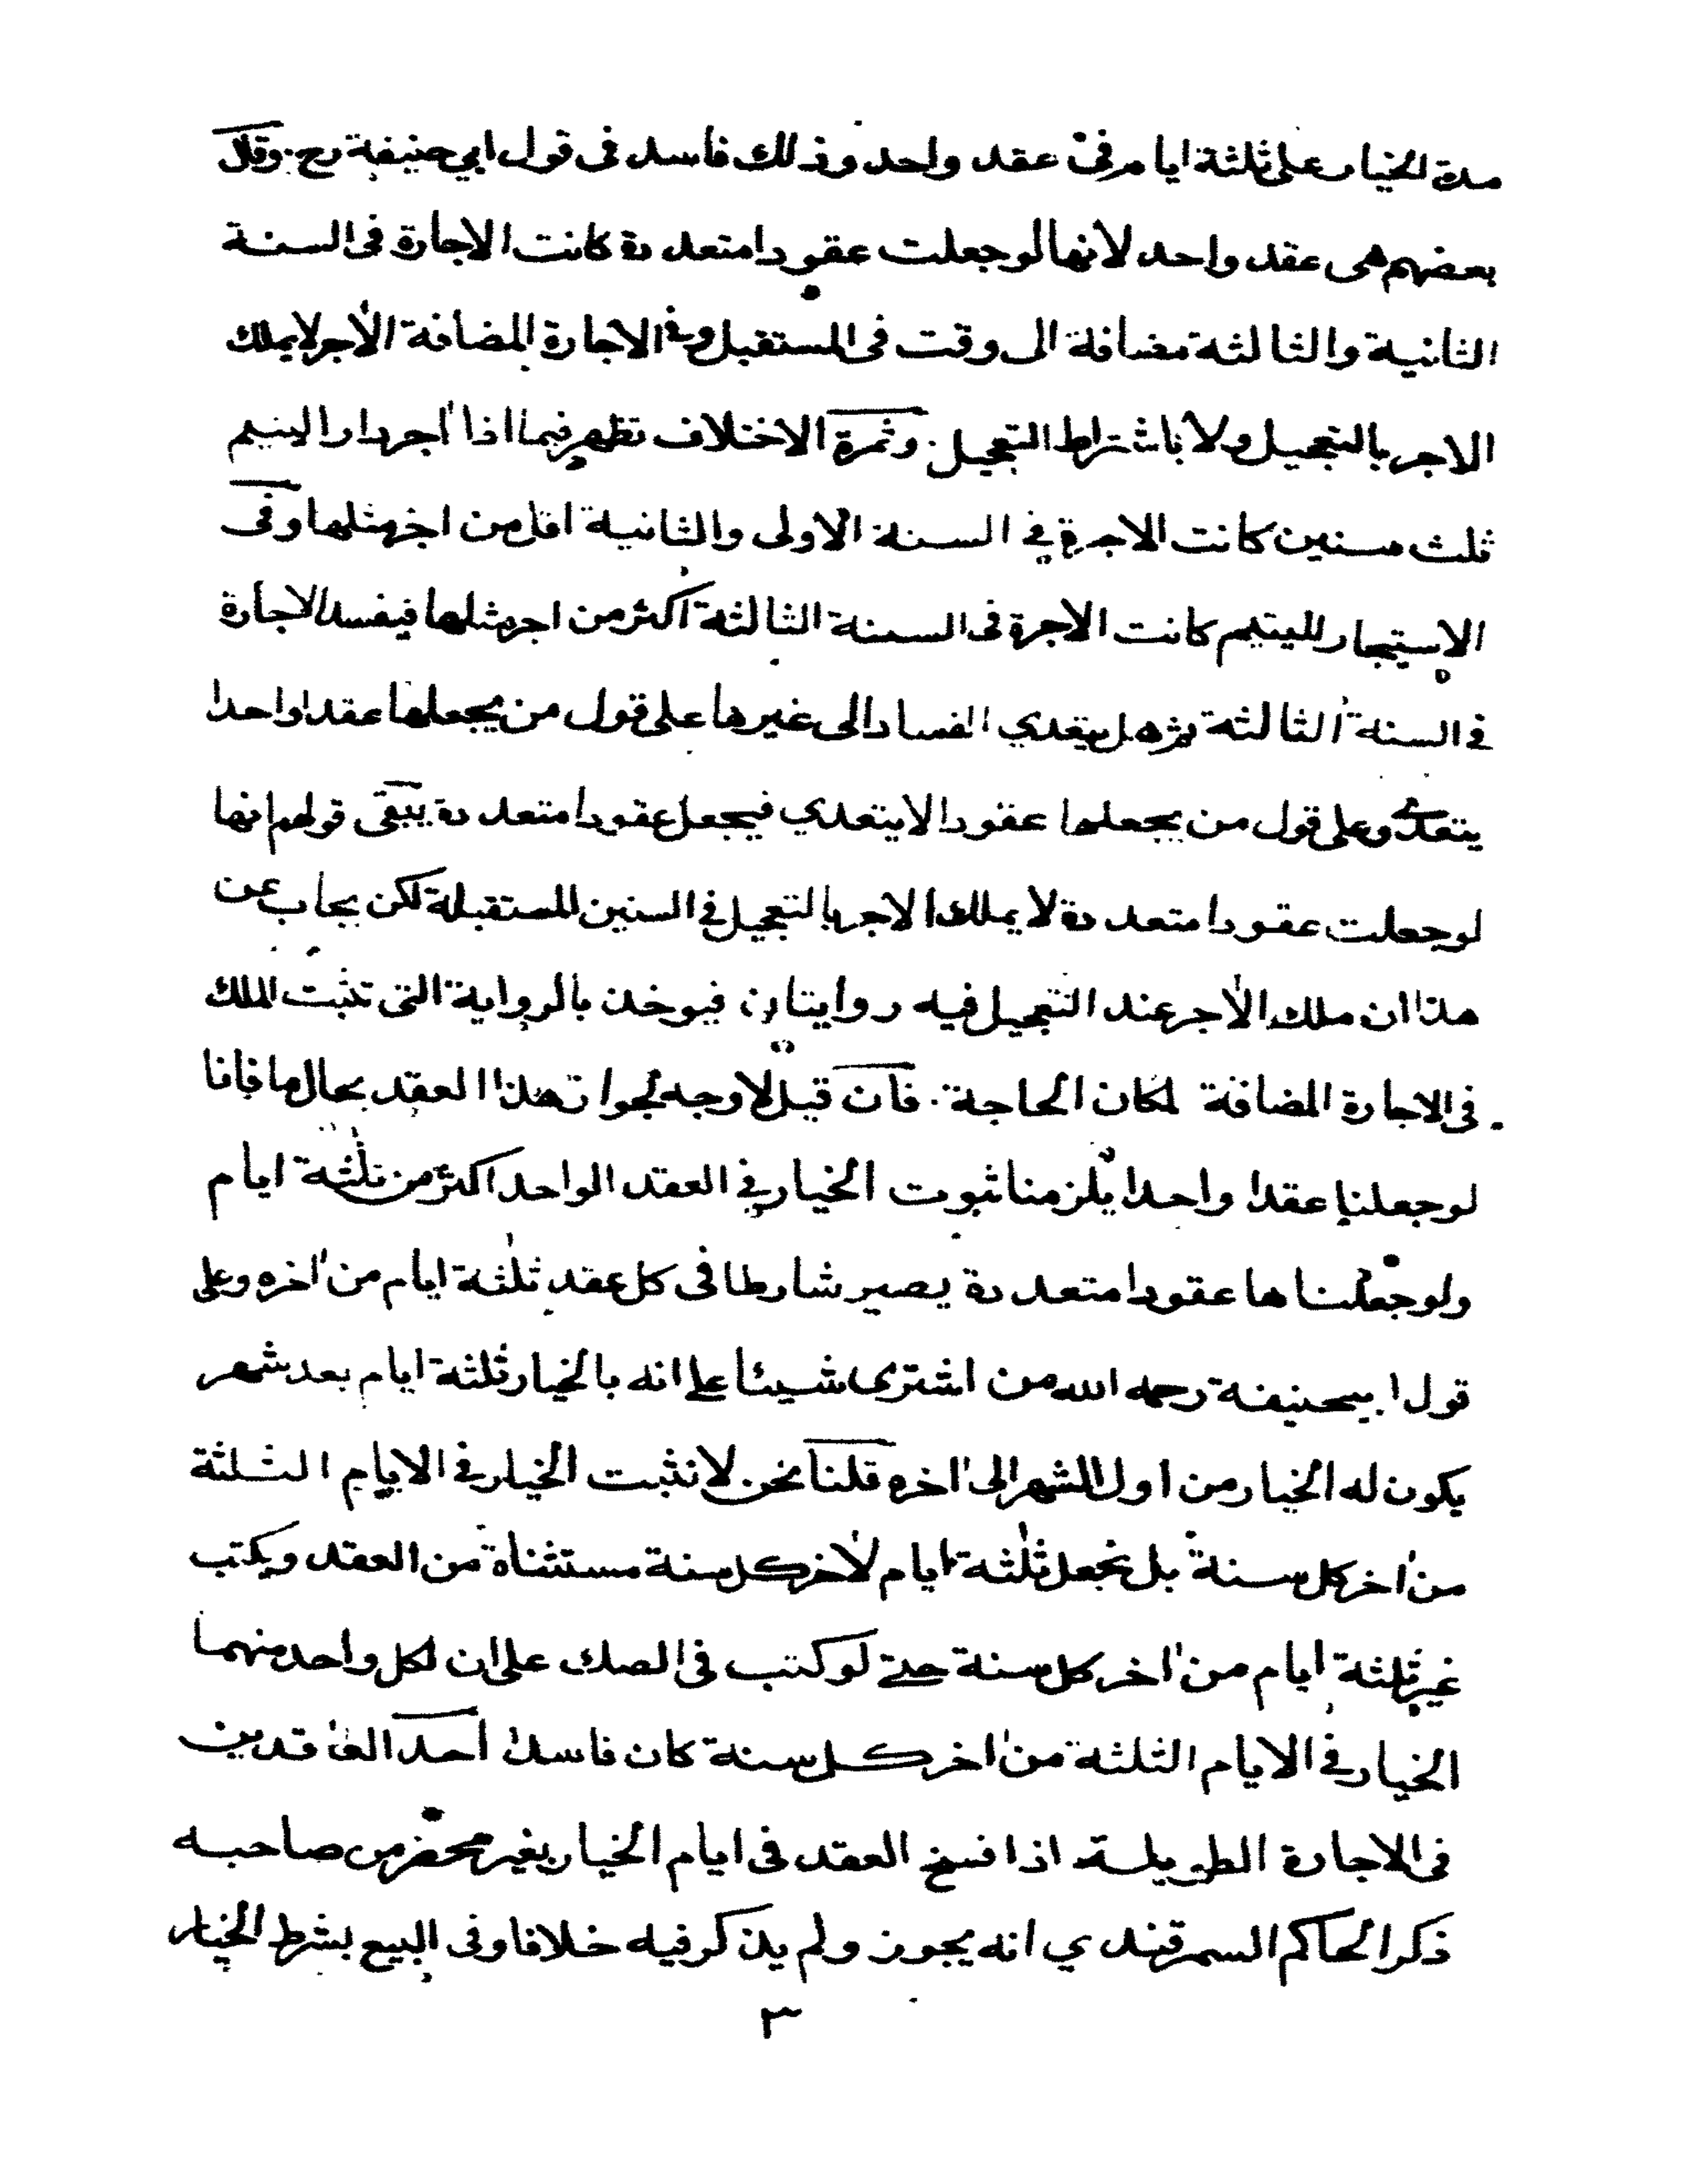 مدة الخيار على ثلثة ايام في عقد واحد وذلك فاسد فى قول ابي حنيفة رح وقال
بعضهم هى عقد واحد لانها لو جعلت عقودا متعددة كانت الاجارة فى السنة
الثانية والثالثة مضافة الى وقت فى المستقبل وفى الاجارة المضافة الاجر لا يملك
الاجر بالتعجيل ولا باشتراط التعجيل وثمرة الاختلاف تظهر فيما اذا اجر دار اليتيم
ثلث سنين كانت الاجرة في السنة الاولى والثانية اقل من اجر مثلها وفى
الاستيجار لليتيم كانت الاجرة فى السنة الثالثة اكثر من اجر مثلها فيفسد الاجارة
في السنة الثالثة ثم هل يتعدي الفساد الى غيرها على قول من يجعلها عقدا واحدا
يتعدى وعلى قول من يجعلها عقودا لا يتعدي فيجعل عقودا متعددة يبقى قولهم انها
لو جعلت عقودا متعددة لا يملك الاجر بالتعجيل في السنين المستقبلة لكن يجاب عن
هذا ان ملك الاجر عند التعجيل فيه روايتان فيوخذ بالرواية التى تثبت الملك
فى الاجارة المضافة لمكان الحاجة فان قيل لا وجه لجواز هذا العقد بحال ما فانا
لو جعلنا عقدا واحدا يلزمنا ثبوت الخيار في العقد الواحد اكثر من ثلثة ايام
ولو جعلناها عقودا متعددة يصير شارطا فى كل عقد ثلثة ايام من اخره وعلى
قول ابيحنيفة رحمه الله من اشترى شيئا على انه بالخيار ثلثة ايام بعد شهر
يكون له الخيار من اول الشهر الى اخره قلنا نحن لا نثبت الخيار في الايام الثلثة
من اخر كل سنة بل نجعل ثلثة ايام لاخر كل سنة مستثناة من العقد ويكتب
غير ثلثة ايام من اخر كل سنة حتى لو كتب فى الصك على ان لكل واحد منهما
الخيار في الايام الثلثة من اخر كل سنة كان فاسدا احد العاقدين
فى الاجارة الطويلة اذا فسخ العقد فى ايام الخيار بغير محضر من صاحبه
ذكر الحاكم السمرقندي انه يجوز ولم يذكر فيه خلافا وفى البيع بشرط الخيار
٣